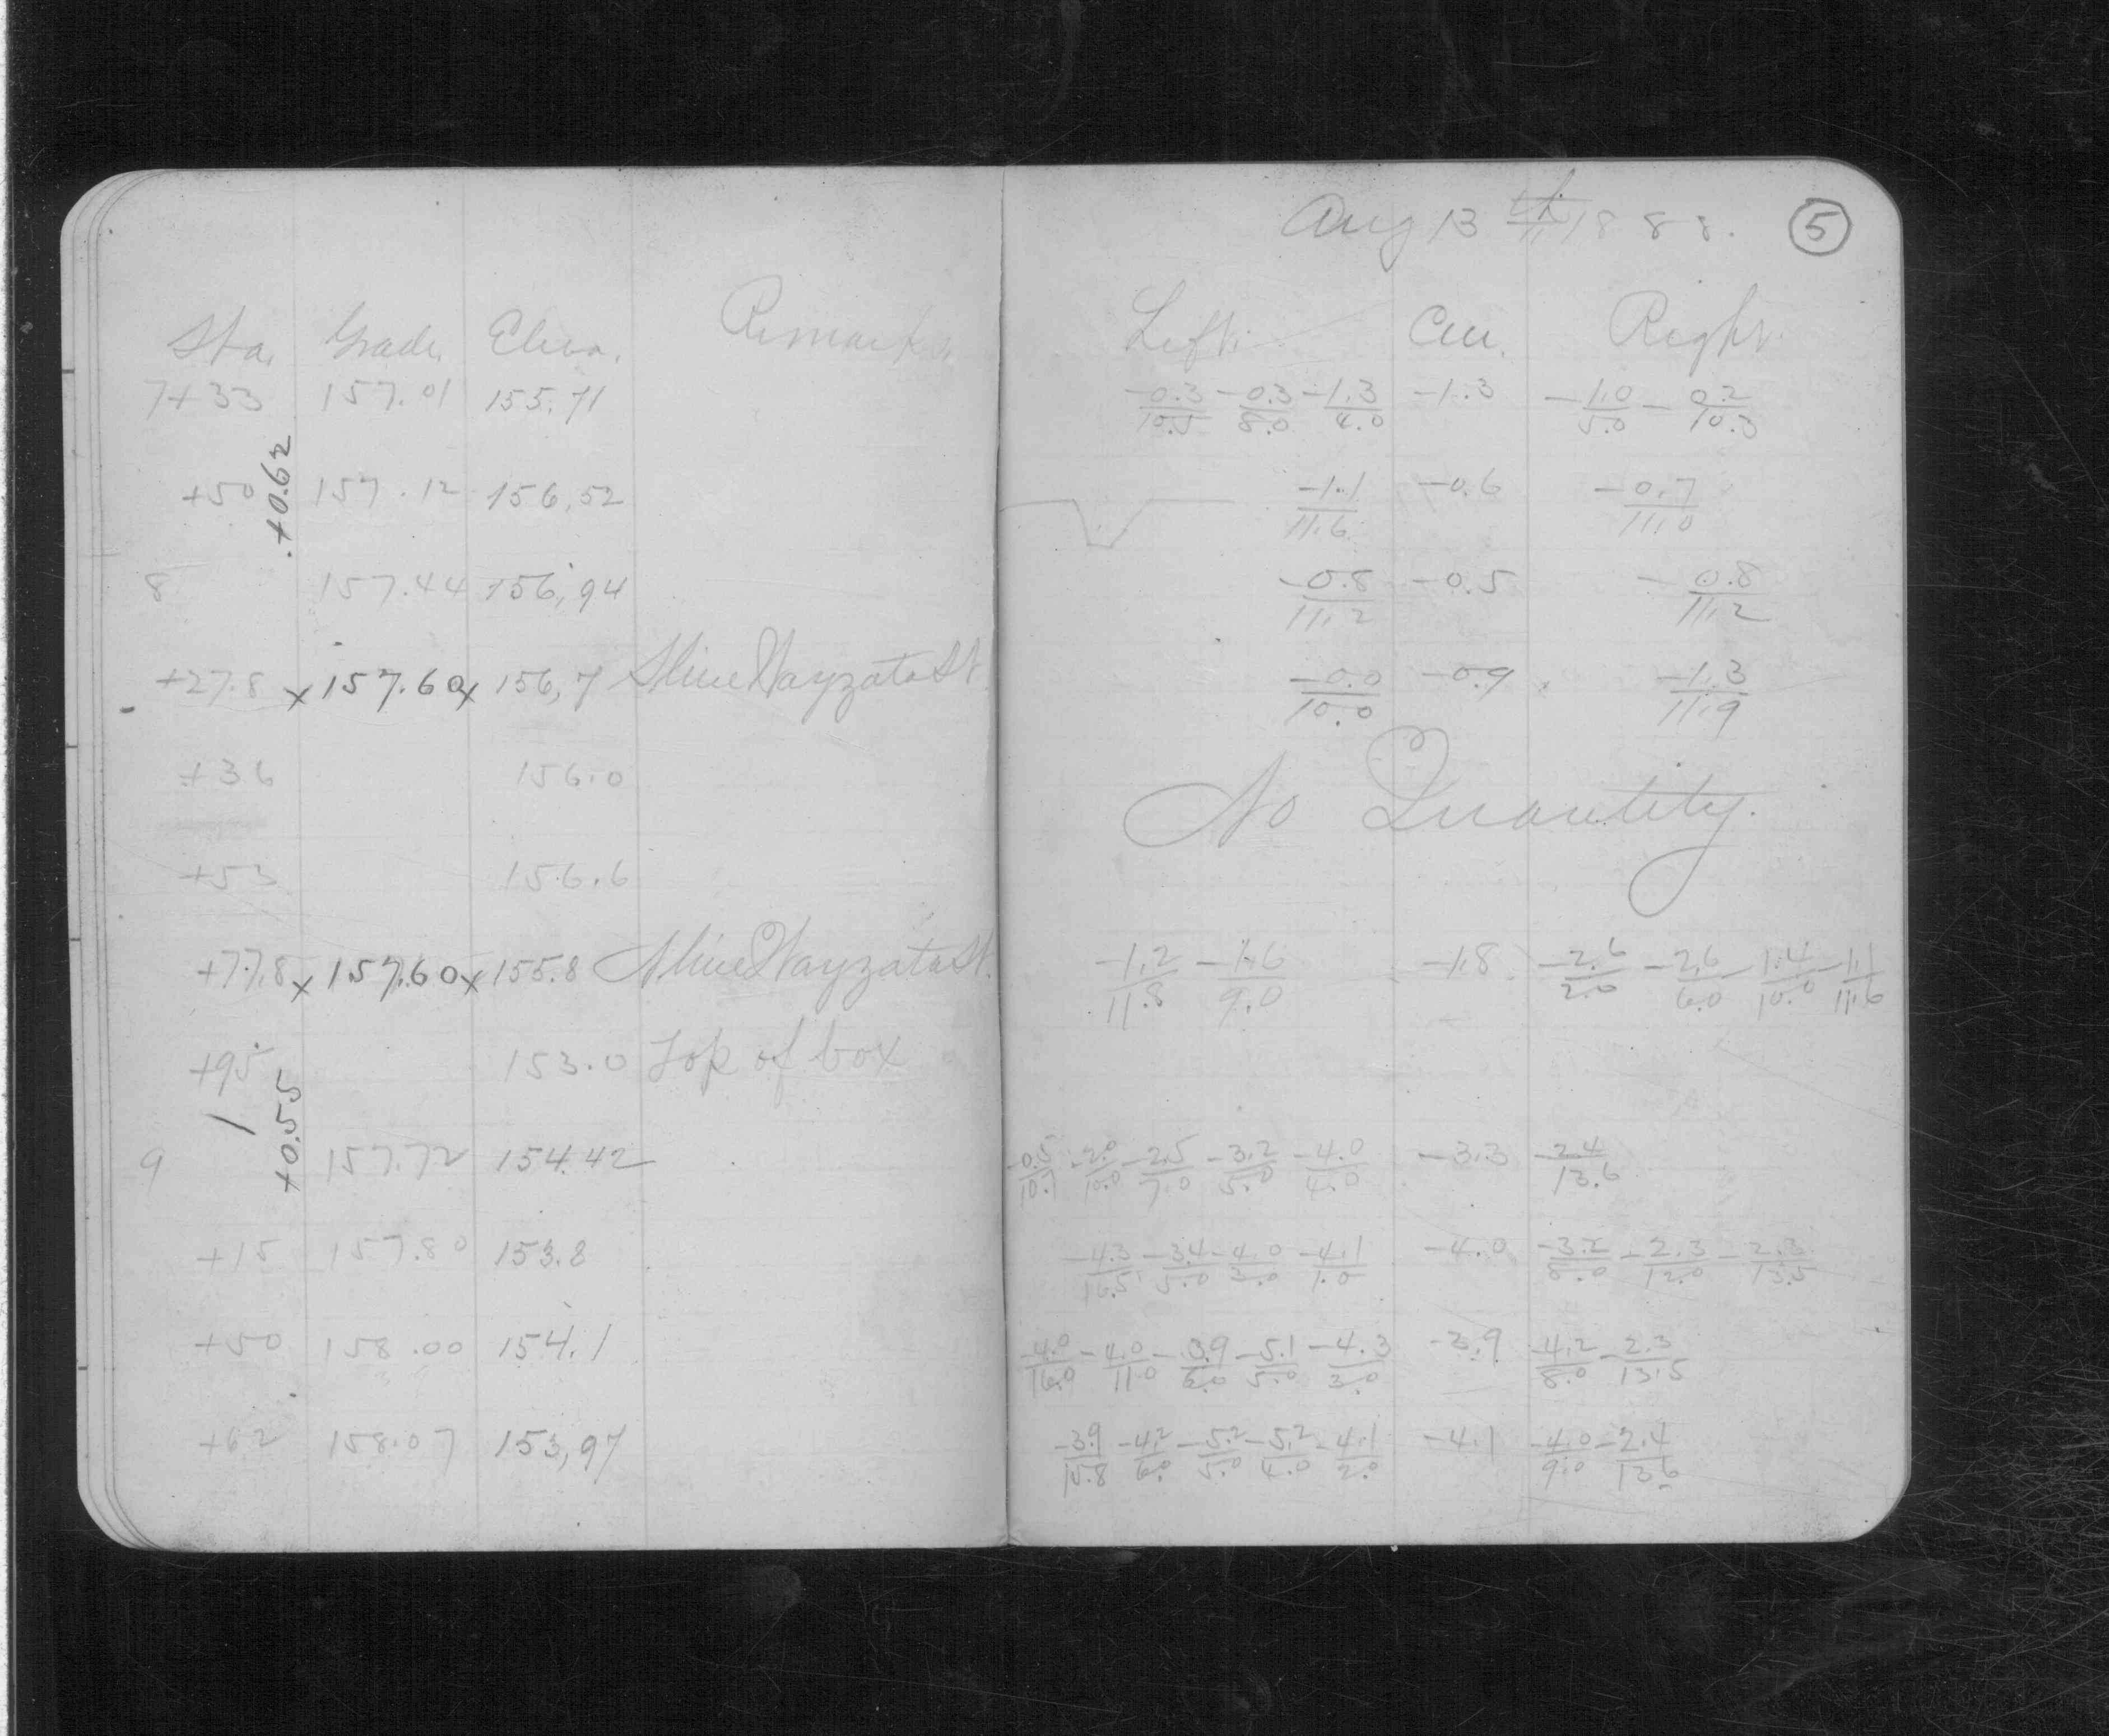 Aug 13th 1888. 5
Sta. Grade Eleva. Remarks. Left. Cen. Right.
7+33 157.01 155.71 -0.3/10.5 -0.3/8.0 -1.3/4.0 -1.3 -1.0/5.0 -0.2/10.3
+0.62
+50 157.12 156.52 -1.1/11.6 -0.6 -0.7/11.0
8 157.44 156.94 -0.8/11.2 -0.5 -0.8/11.2
+27.8 x 157.60 x 156.7 S line Wayzata St -0.0/10.0 -0.9 -1.3/11.9
+36 156.0
No Quantity.
+53 156.6
+77.8 x 157.60 x 155.8 N line Wayzata St. -1.2/11.8 -1.6/9.0 -1.8 -2.6/2.0 -2.6/6.0 -1.4/10.0 -1.1/11.6
+95 153.0 Top of box
+0.55
9 157.72 154.42 -0.5/10.7 -2.0/10.0 -2.5/7.0 -3.2/5.0 -4.0/4.0 -3.3 -2.4/13.6
+15 157.80 153.8 -4.3/16.5 -3.4/5.0 -4.0/3.0 -4.1/1.0 -4.0 -3.2/8.0 -2.3/12.0 -2.3/13.5
+50 158.00 154.1 -4.0/16.0 -4.0/11.0 -3.9/6.0 -5.1/5.0 -4.3/3.0 -3.9 -4.2/8.0 -2.3/13.5
+62 158.07 153,97 -3.9/15.8 -4.2/6.0 -5.2/5.0 -5.2/4.0 -4.1/2.0 -4.1 -4.0/9.0 -2.4/13.6